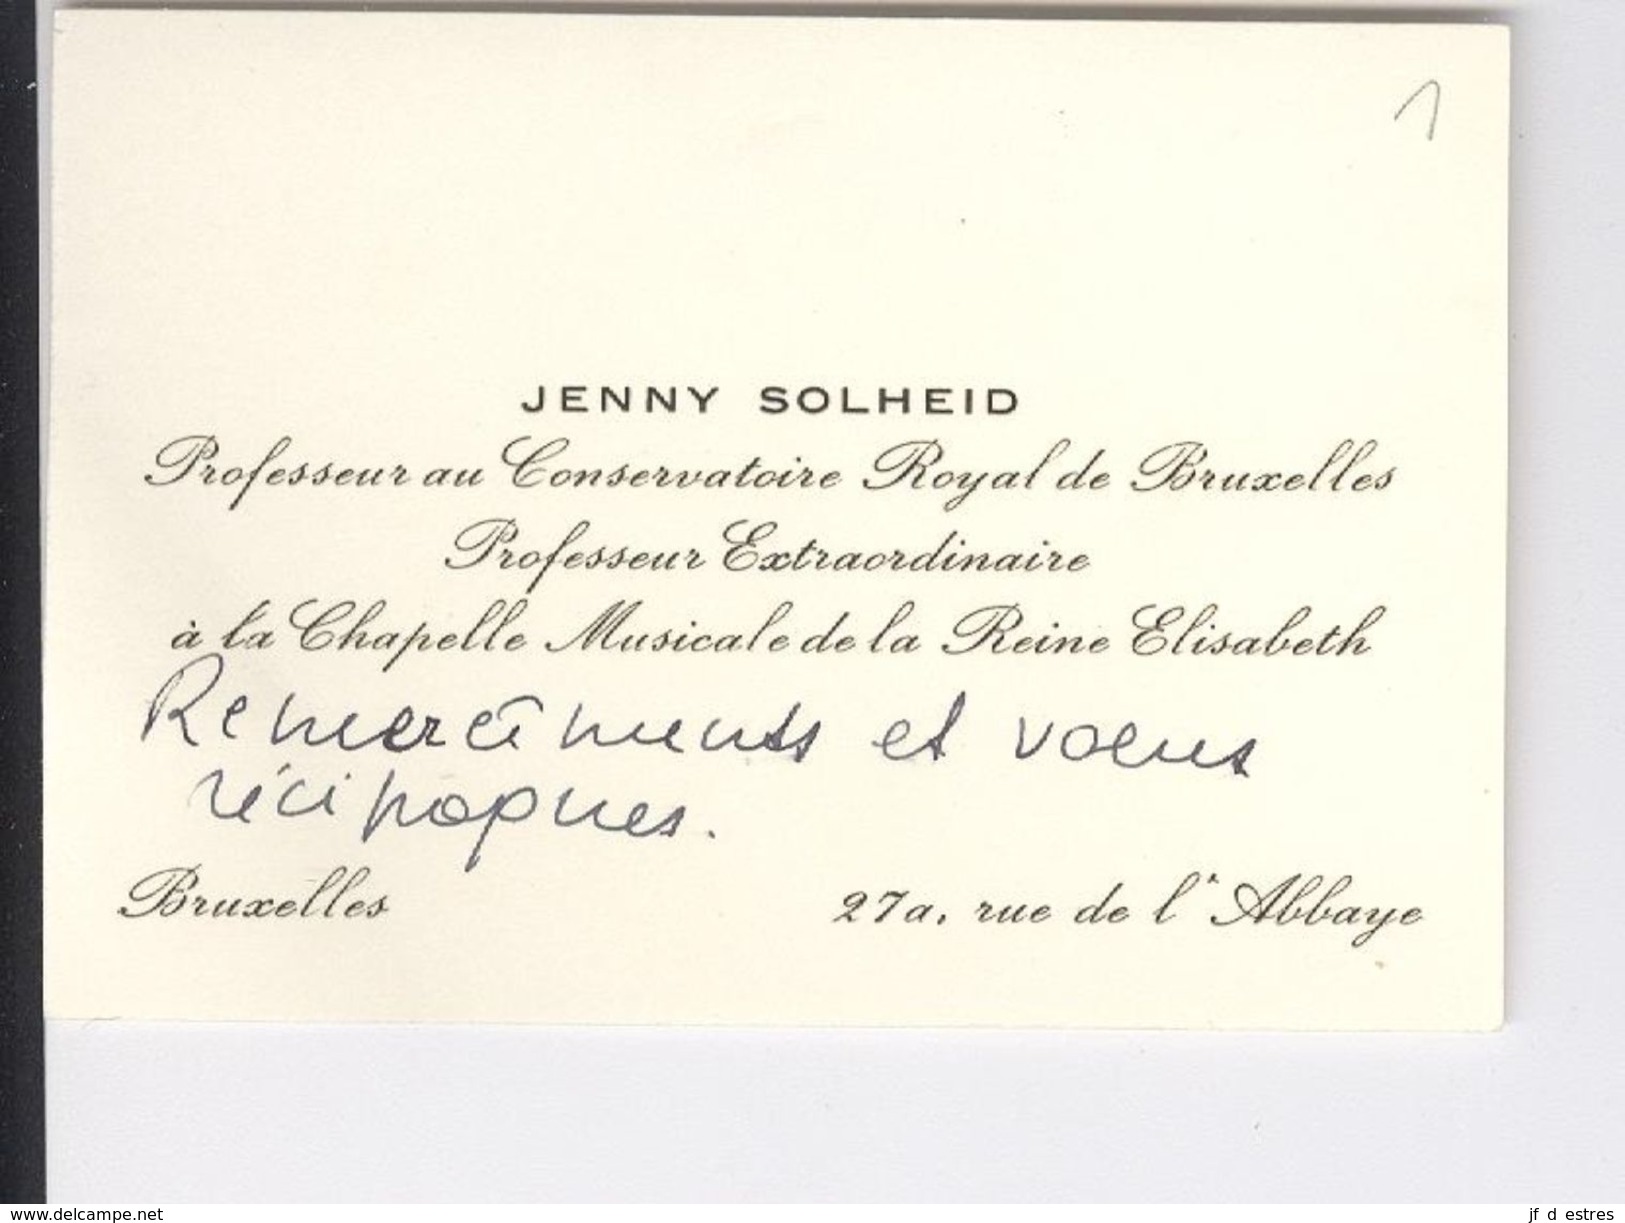 1
JENNY SOLHEID
Professeur au Conservatoire Royal de Bruxelles
Professeur Extraordinaire
à la Chapelle Musicale de la Reine Elisabeth
Remerciements et voeux
réciproques.
Bruxelles 27a, rue de l'Abbaye
www.delcampe.net jf d estres